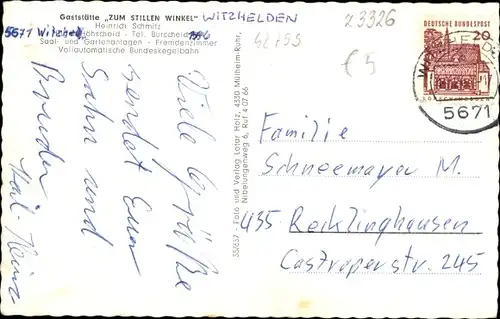 Gaststätte „ZUM STILLEN WINKEL" WITZHELDEN
Heinrich Schmitz
5671 Witzhelden
Höhscheid - Tel. Burscheid
Saal- und Gartenanlagen - Fremdenzimmer
Vollautomatische Bundeskegelbahn
23326
42799
€5
DEUTSCHE BUNDESPOST
20
5671
Viele Grüße
sendet Euer
Sohn und
Bruder
Karl-Heinz
35/657 - Foto und Verlag Lothar Holz, 4330 Mülheim-Ruhr,
Nibelungenweg 6, Ruf 4 07 66
Familie
Schneemayer M.
435 Recklinghausen
Castroperstr. 245